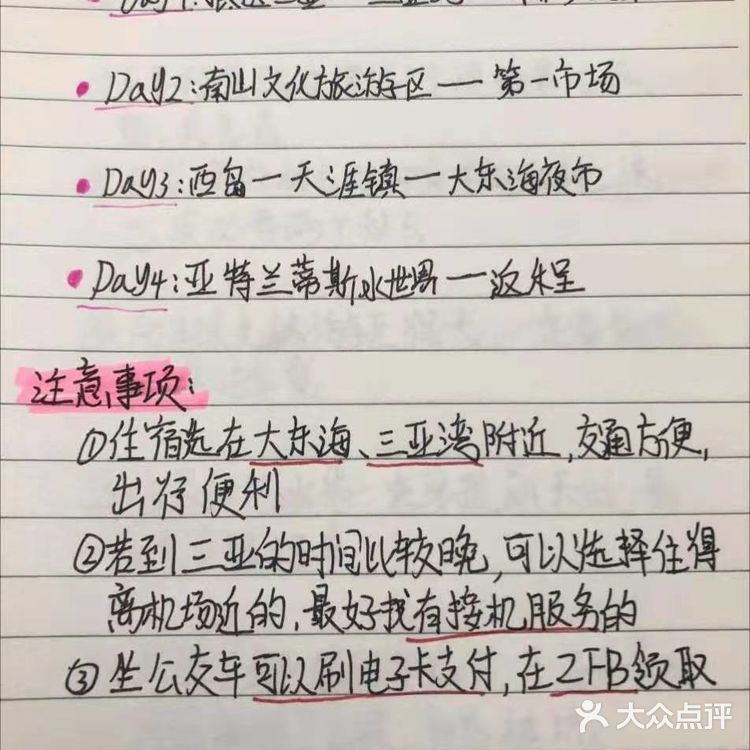 Day2:南山文化旅游区——第一市场
Day3:西岛—天涯镇—大东海夜市
Day4:亚特兰蒂斯水世界——返程
注意事项:
①住宿选在大东海、三亚湾附近,交通方便,
出行便利
②若到三亚的时间比较晚,可以选择住得
离机场近的,最好找有接机服务的
③坐公交车可以刷电子卡支付,在ZFB领取
大众点评